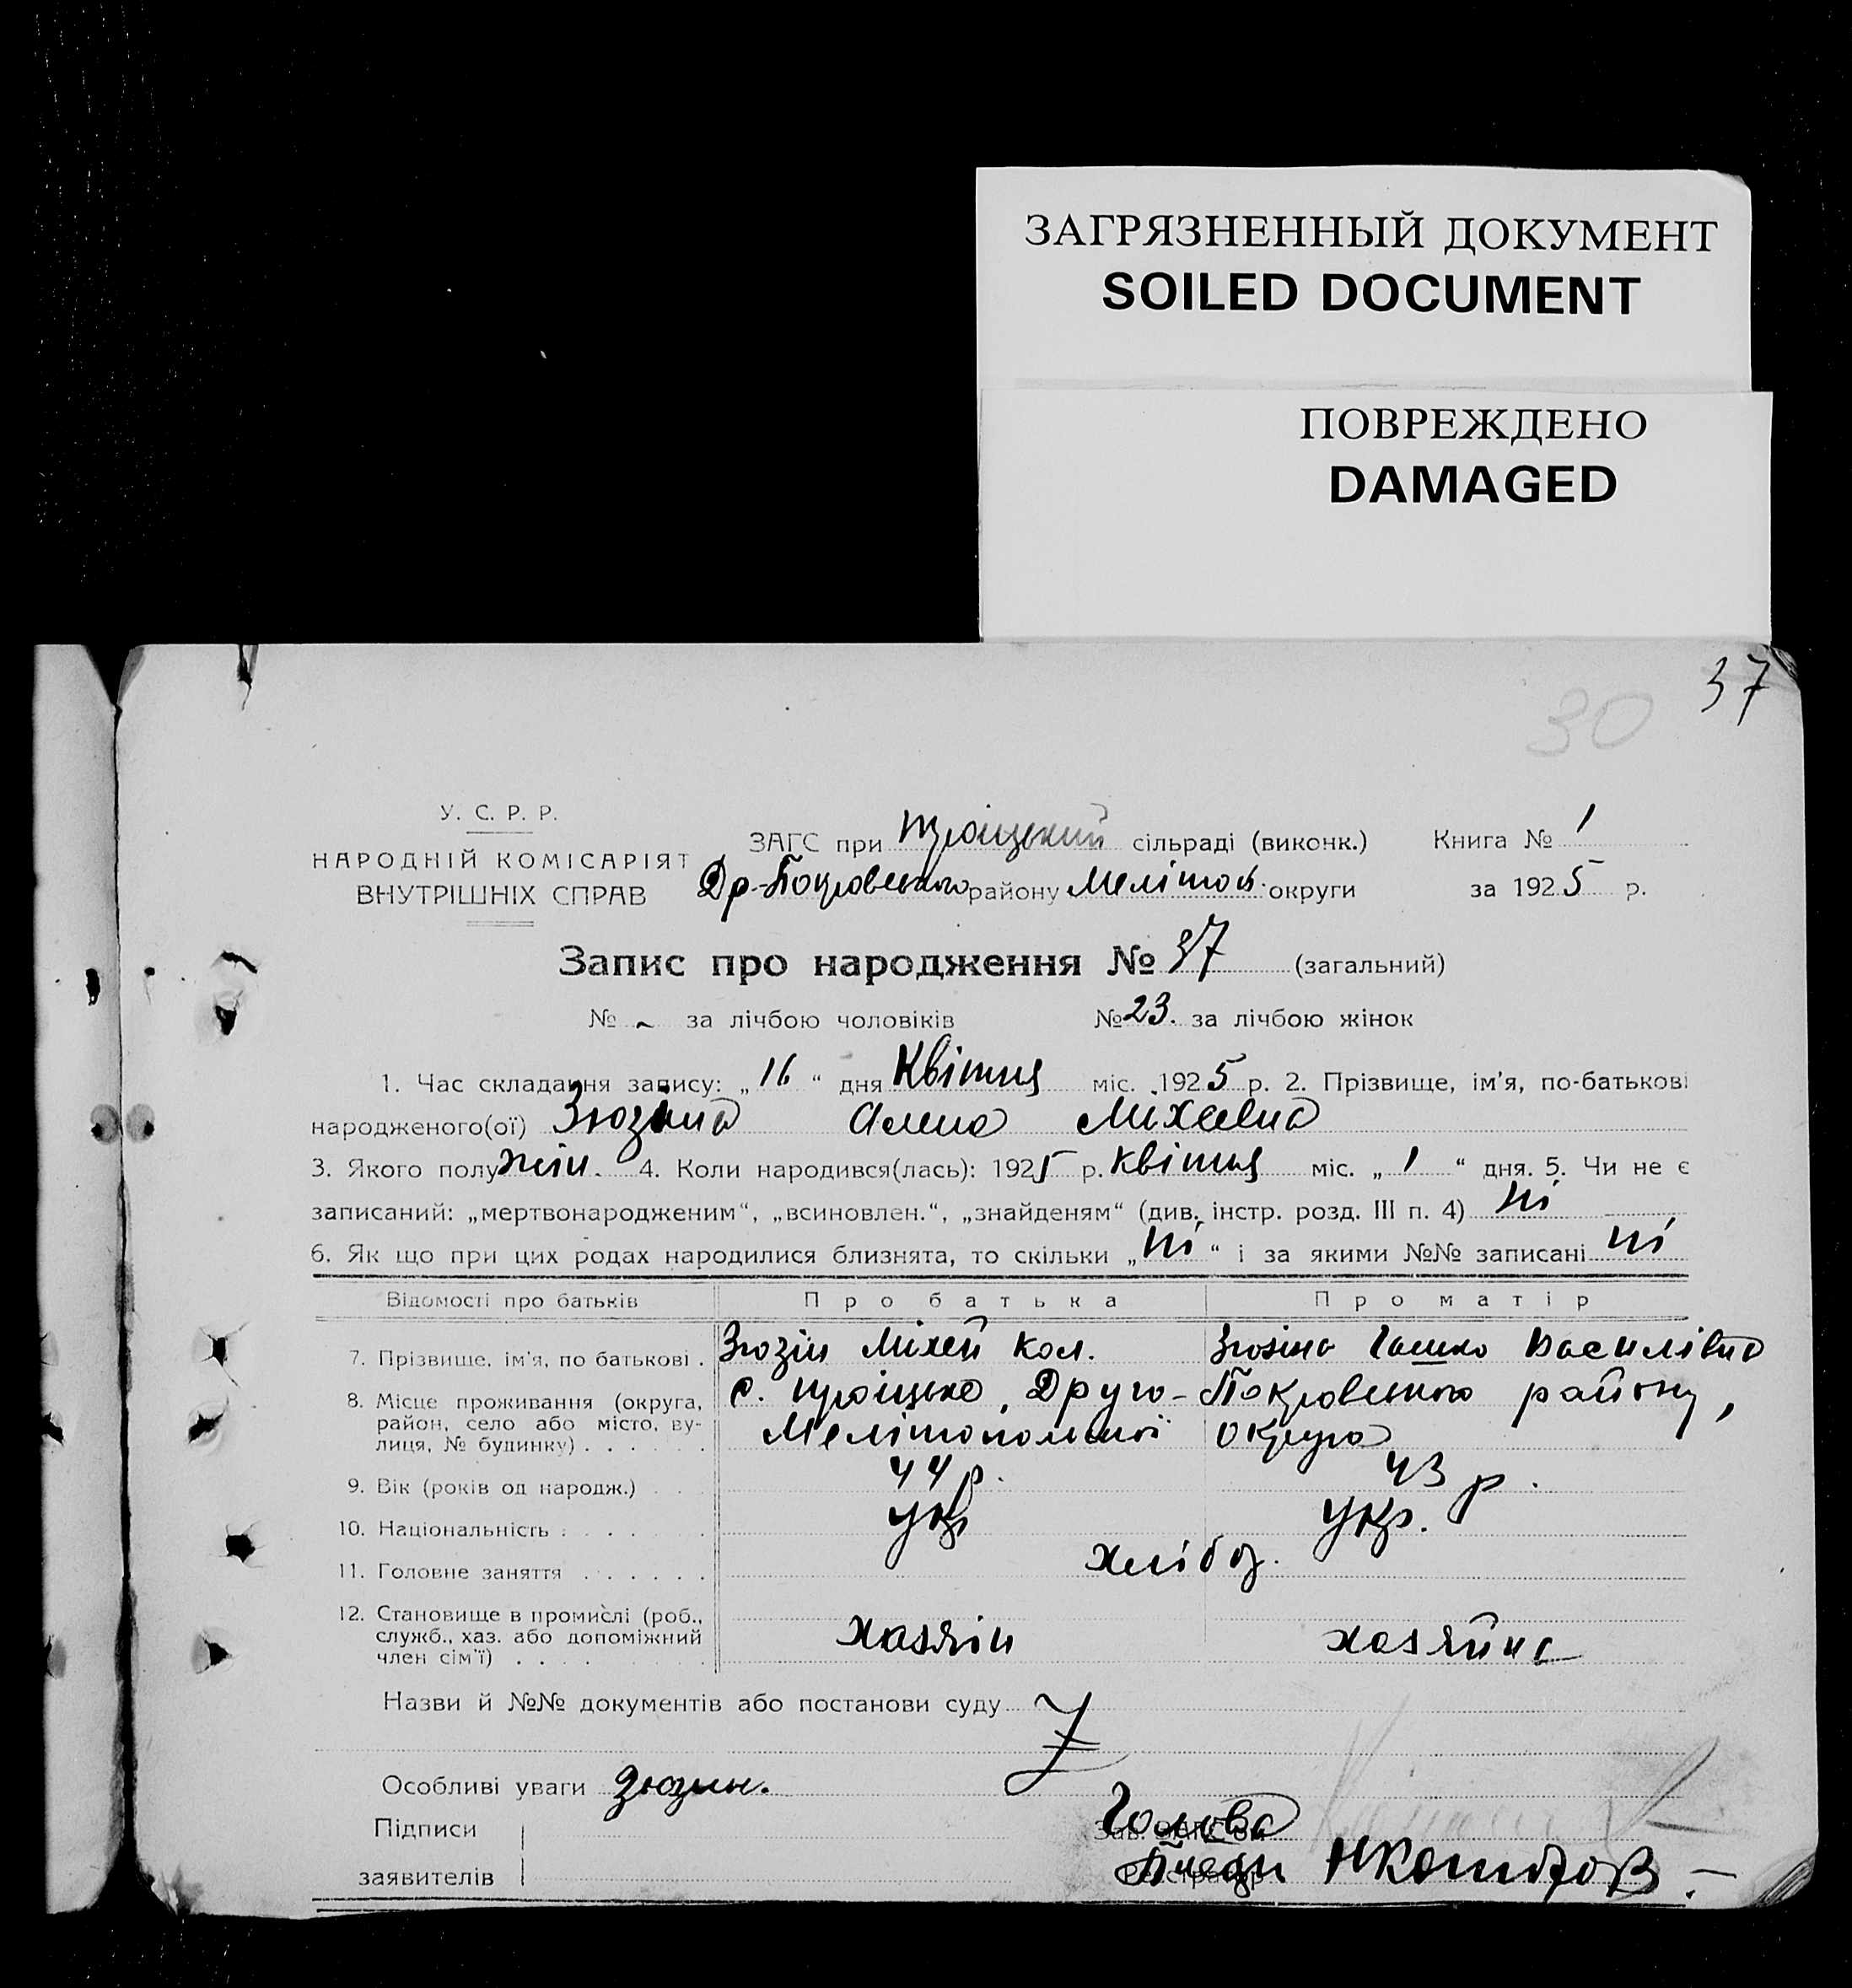 ЗАГРЯЗНЕННЫЙ ДОКУМЕНТ
SOILED DOCUMENT
ПОВРЕЖДЕНО
DAMAGED
37
30
У. С. Р. Р.
НАРОДНІЙ КОМІСАРІЯТ
ВНУТРІШНІХ СПРАВ
ЗАГС при Троіцький сільраді (виконк.) Книга № 1
Др-Покровського району Мелітоп. округи за 1925 р.
Запис про народження № 37 (загальний)
№ - за лічбою чоловіків № 23. за лічбою жінок
1. Час складання запису: „16“ дня Квітня міс. 1925 р. 2. Прізвище, ім'я, по-батькові
народженого(ої) Зюзіна Міхеевна
3. Якого полу жін. 4. Коли народився(лась): 1925 р. квітня міс. „1“ дня. 5. Чи не є
записаний: „мертвонародженим“, „всиновлен.“, „знайденям“ (див. інстр. розд. III п. 4) ні
6. Як що при цих родах народилися близнята, то скільки „ні“ і за якими №№ записані ні
Відомості про батьків Про батька Про матір
7. Прізвище, ім'я, по батькові . Зюзін Міхей Зюзіна Василівна
8. Місце проживання (округа, район, село або місто, вулиця, № будинку) . . . . . . с. Троіцьке, Друго-Покровського району, Мелітопольської округа
9. Вік (років од народж.) . . . 44 р. 43 р.
10. Національність . . . . . . укр укр.
11. Головне заняття . . . . . . хлібор.
12. Становище в промислі (роб., служб., хаз. або допоміжний член сім'ї) . . . . . . хазяін хазяйка
Назви й №№ документів або постанови суду
Особливі уваги Зюзин.
Підписи
заявителів
Голова
Зав. ЗАГС'ом
Реєстратор